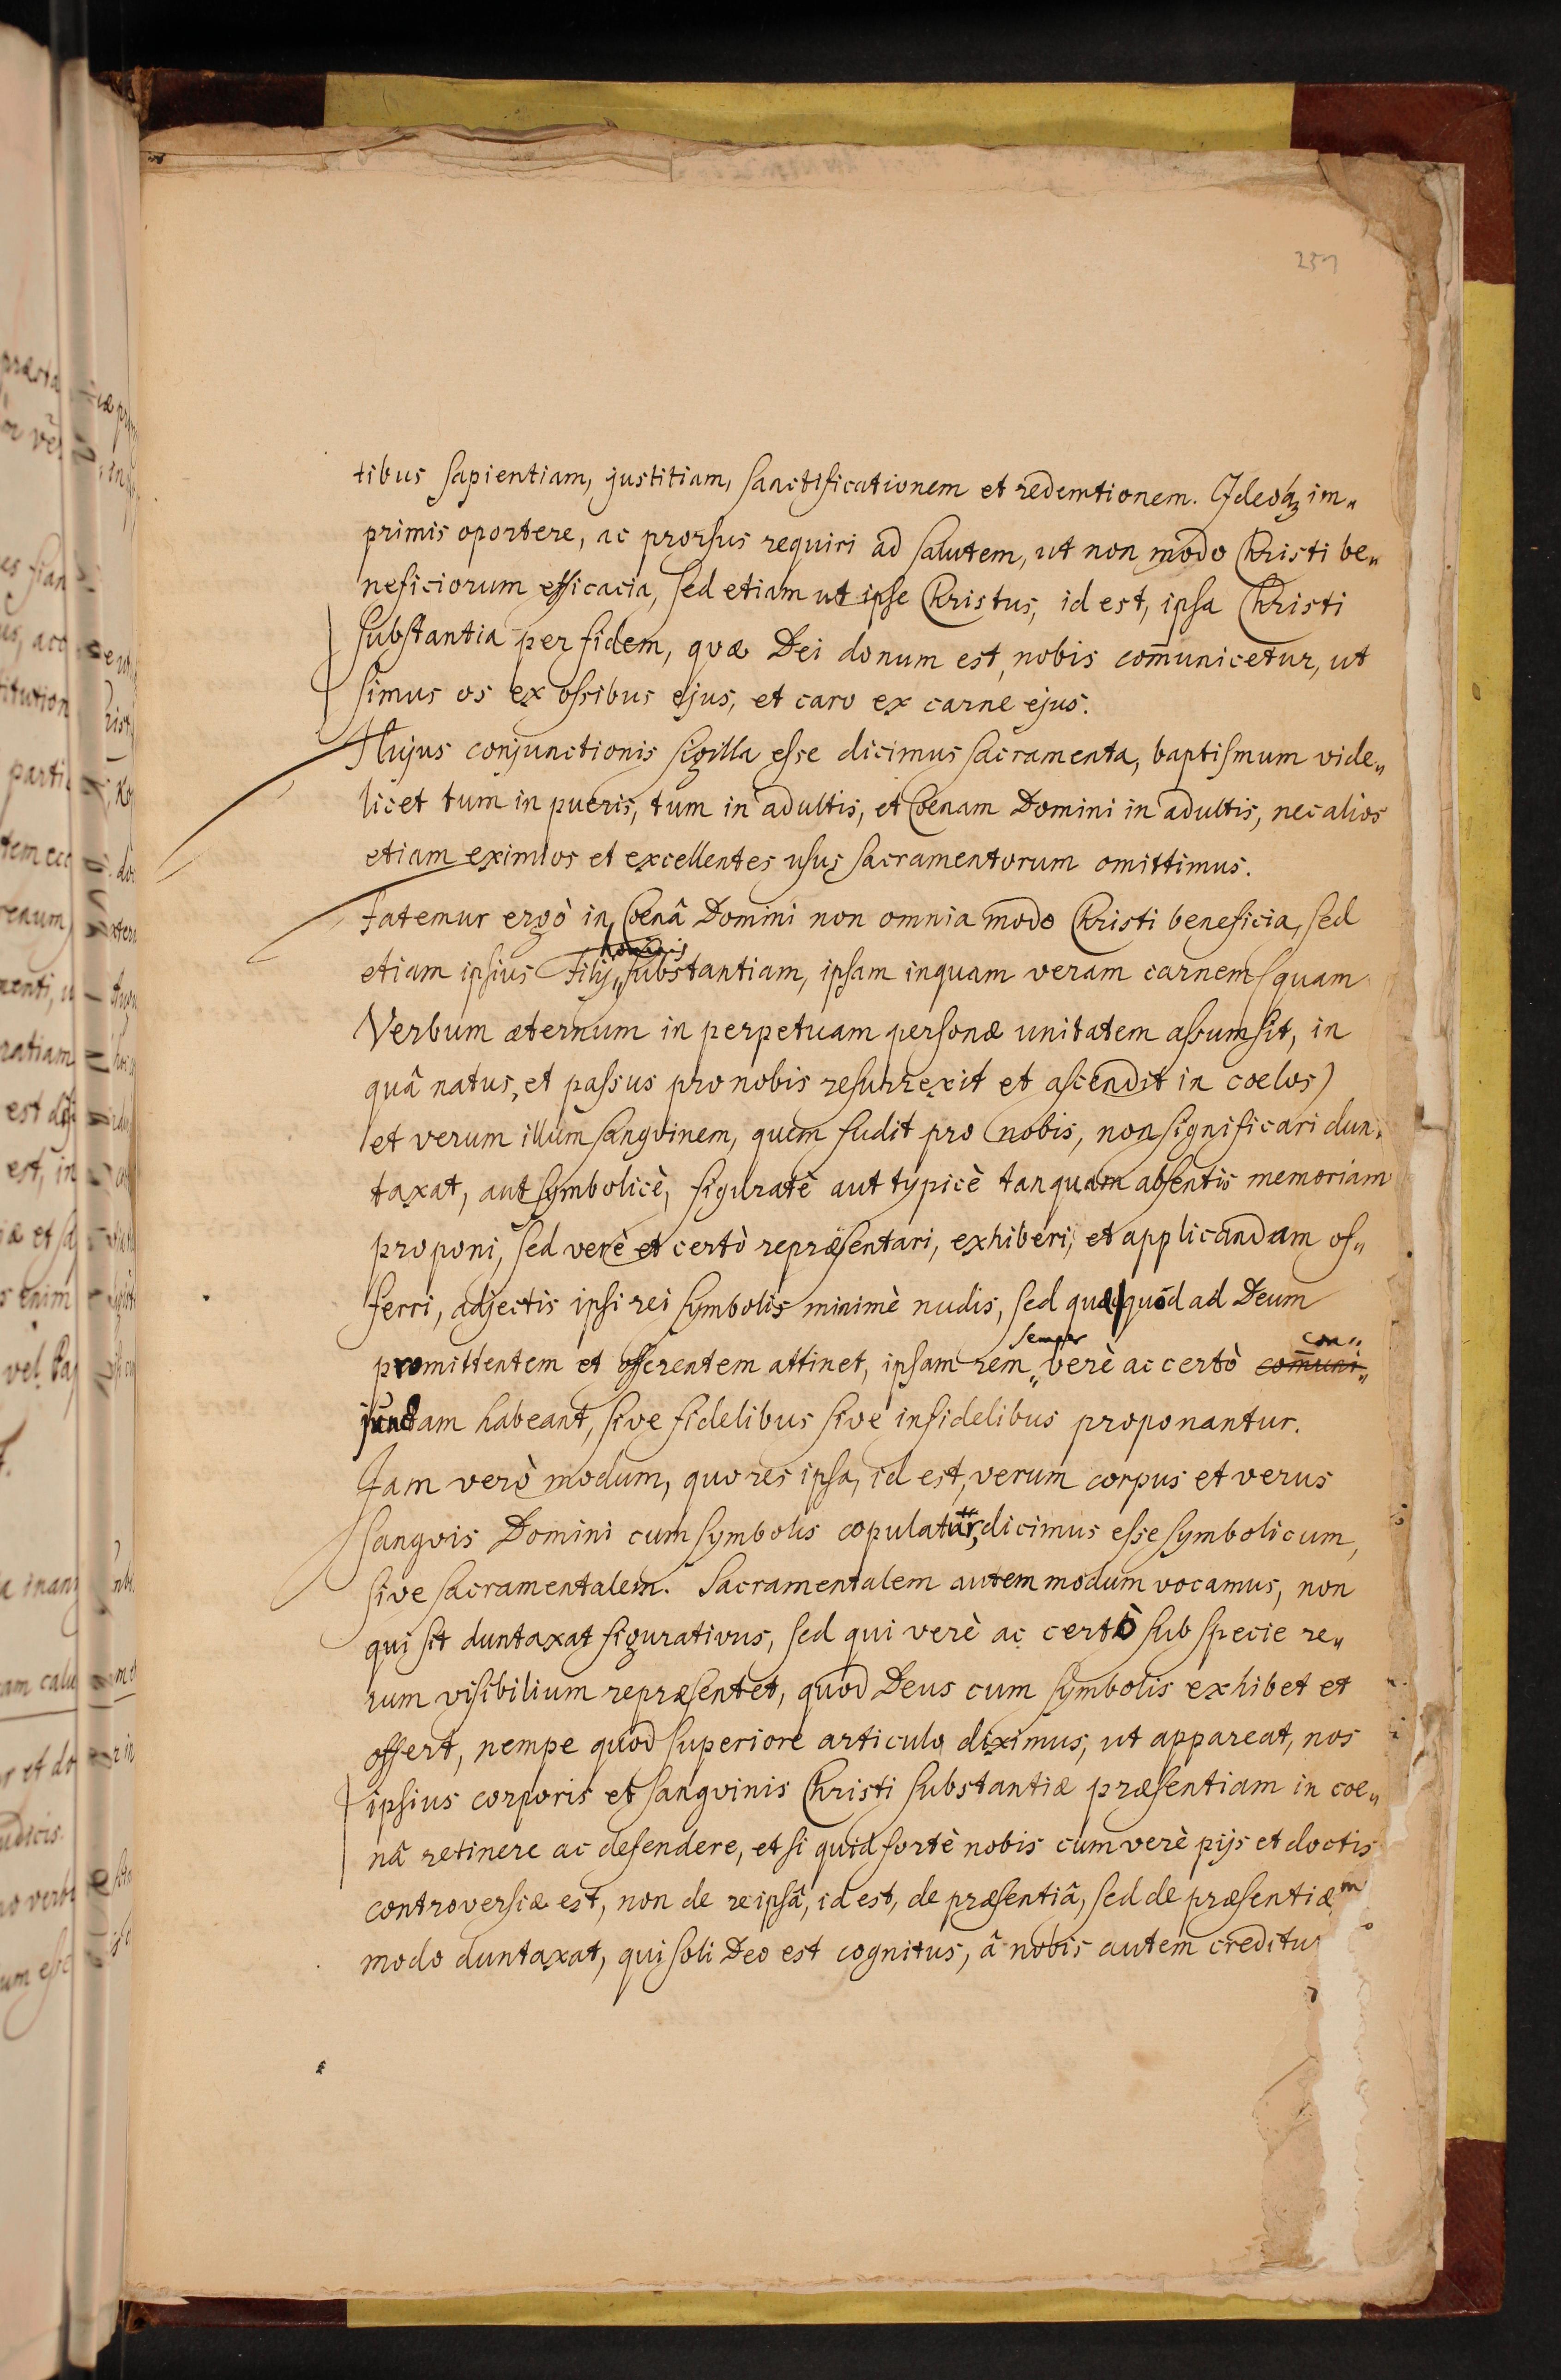 257
tibus sapientiam, justitiam, sanctificationem et redemtionem. Ideoq im„
primis oportere, ac prorsus requiri ad salutem, ut non modo Christi be„
neficiorum efficacia, sed etiam ut ipse Christus, id est, ipsa Christi
substantia per fidem, qvæ Dei donum est, nobis com̄unicetur, ut
simus os ex ossibus ejus, et caro ex carne ejus.
Hujus conjunctionis sigilla esse dicimus sacramenta, baptismum vide„
licet tum in pueris, tum in adultis, et Coenam Domini in adultis, nec alios
etiam eximios et excellentes usus sacramentorum omittimus.
Fatemur ergò in Coenâ Domini non omnia modo Christi beneficia, sed
hominis
etiam ipsius Filij „ substantiam, ipsam inquam veram carnem (quam
Verbum æternum in perpetuam personæ unitatem assumsit, in
quâ natus, et passus pro nobis resurrexit et ascendit in coelos)
et verum illum sangvinem, quem fudit pro nobis, non significari dun„
taxat, aut symbolicè, figuratè aut typicè tanquam absentis memoriam
proponi, sed verè et certò repræsentari, exhiberi, et applicandam of„
ferri, adjectis ipsi rei symbolis minimè nudis, sed quæ quod ad Deum
semper con„
promittentem et offerentem attinet, ipsam rem „ verè ac certò com̄uni„
junctam habeant, sive fidelibus sive infidelibus proponantur.
Jam verò modum, quo res ipsa, id est, verum corpus et verus
sangvis Domini cum symbolis copulatur, dicimus esse symbolicum,
sive sacramentalem. Sacramentalem autem modum vocamus, non
qui sit duntaxat figurativus, sed qui verè ac certò sub specie re„
rum visibilium repræsentet, quod Deus cum symbolis exhibet et
offert, nempe quod superiore articulo diximus, ut appareat, nos
ipsius corporis et sangvinis Christi substantiæ præsentiam in coe„
nâ retinere ac defendere, et si quid fortè nobis cum verè pijs et doctis
controversiæ est, non de re ipsâ, id est, de præsentiâ, sed de præsentiæ
modo duntaxat, qui soli Deo est cognitus, â nobis autem creditur